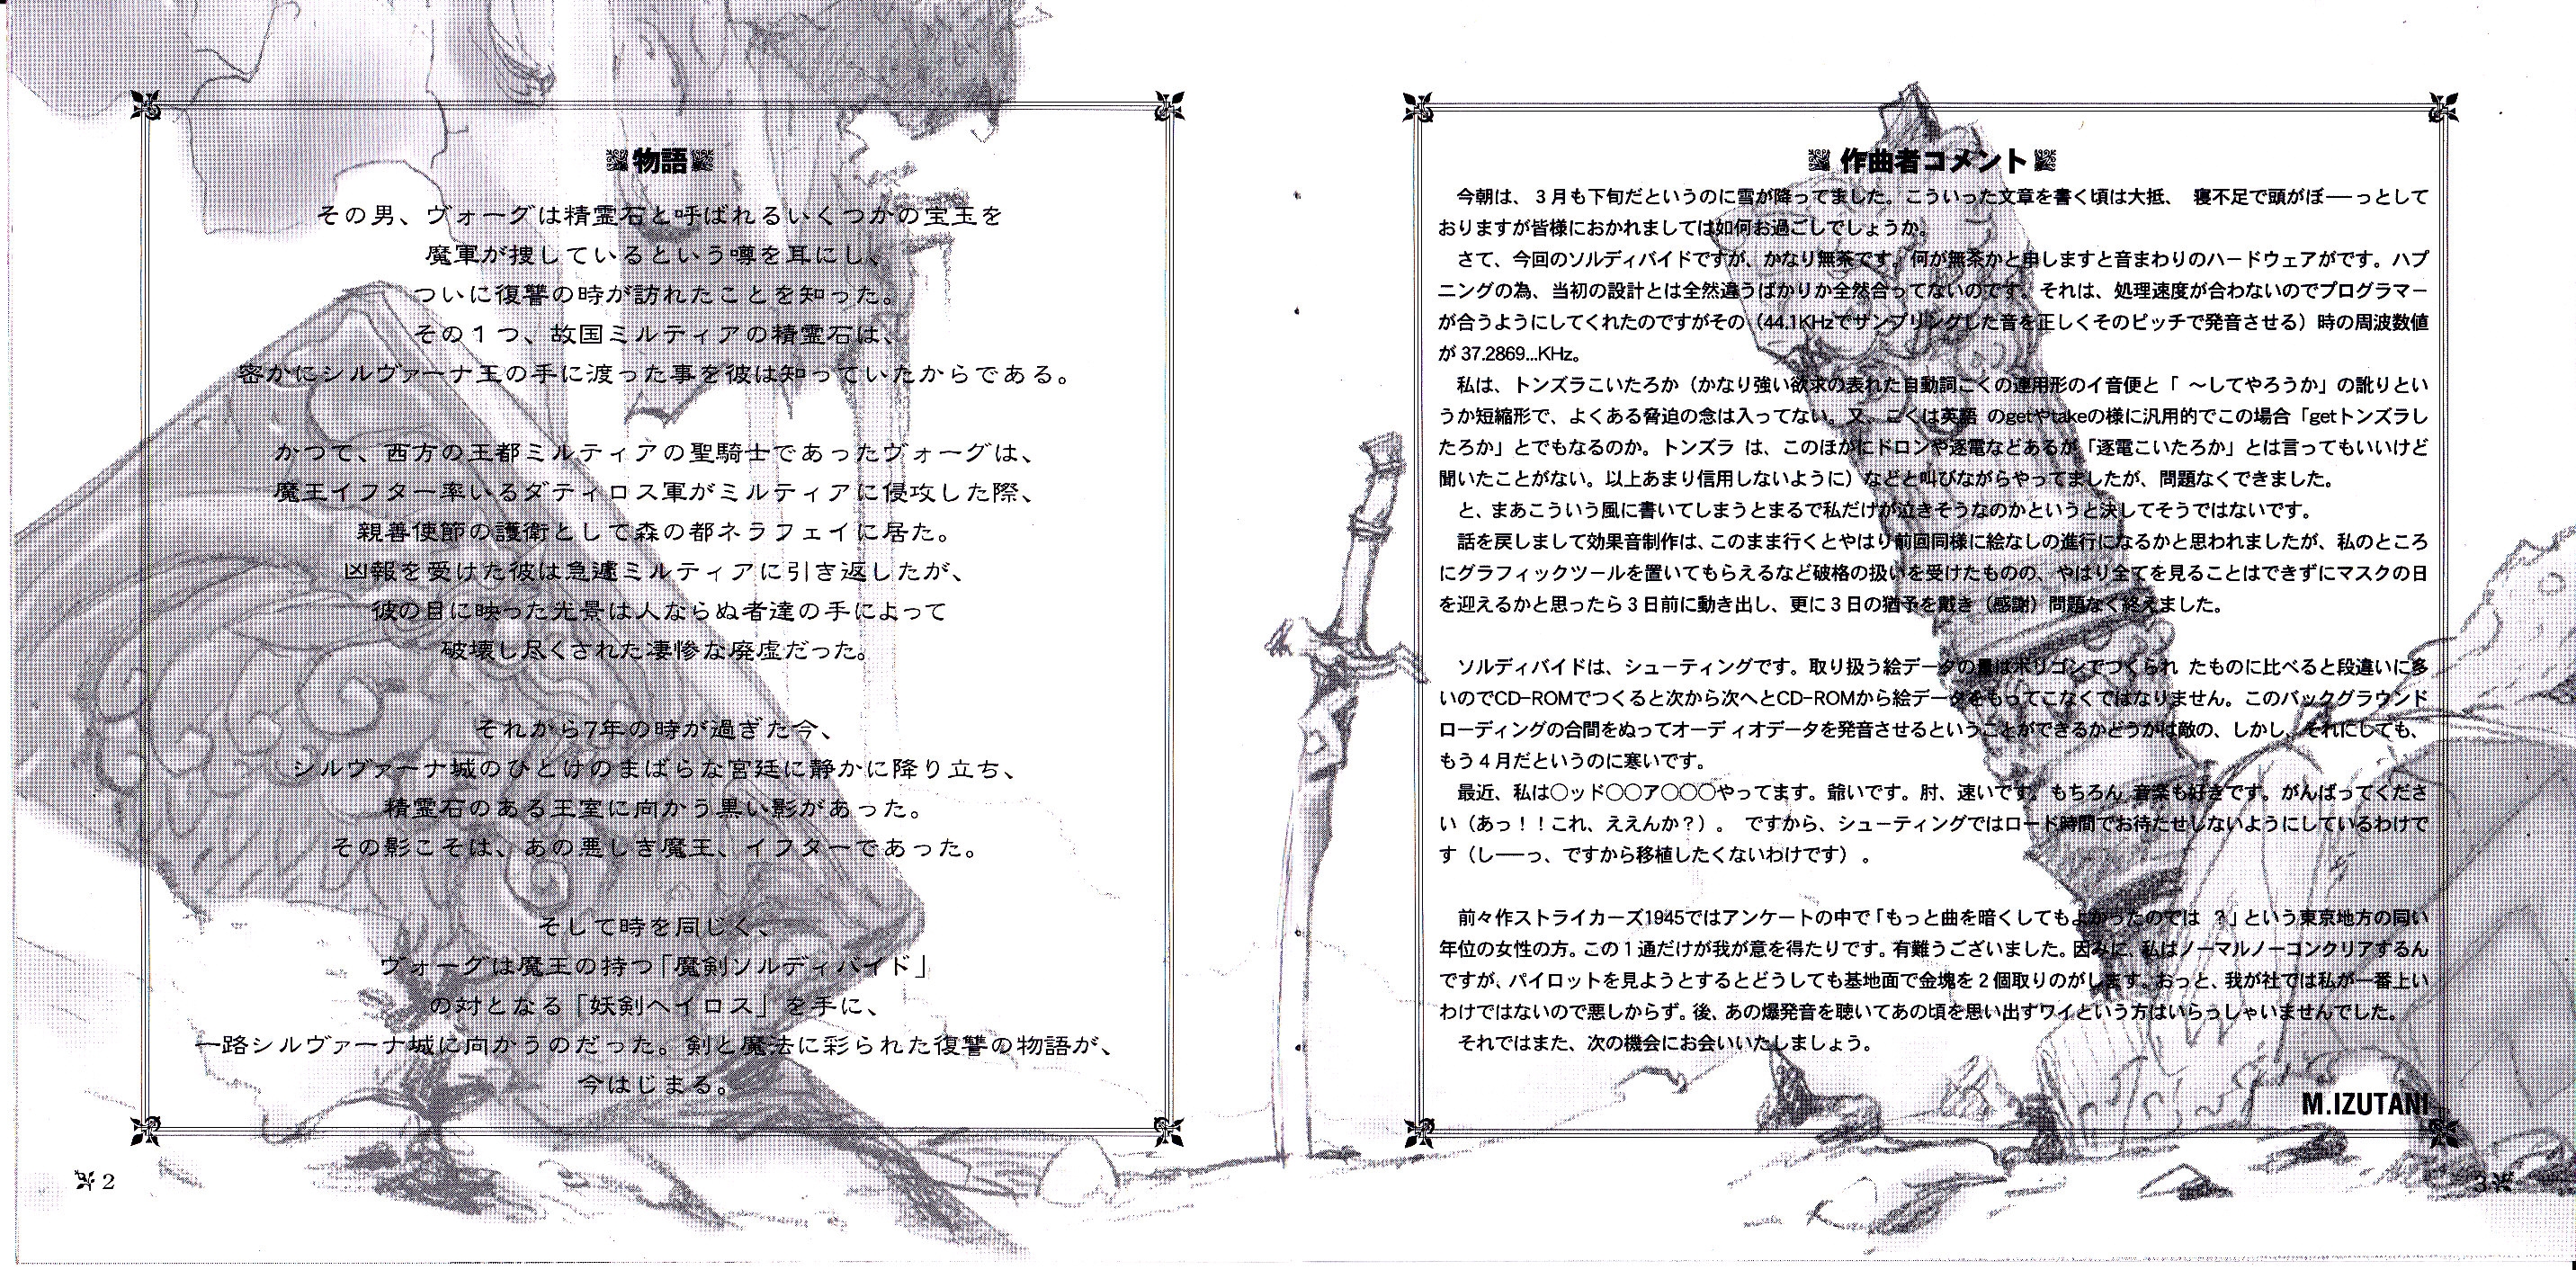 物語
その男、ヴォーグは精霊石と呼ばれるいくつかの宝玉を
魔軍が捜しているという噂を耳にし、
ついに復讐の時が訪れたことを知った。
その１つ、故国ミルティアの精霊石は、
密かにシルヴァーナ王の手に渡った事を彼は知っていたからである。
かつて、西方の王都ミルティアの聖騎士であったヴォーグは、
魔王イフター率いるダティロス軍がミルティアに侵攻した際、
親善使節の護衛として森の都ネラフェイに居た。
凶報を受けた彼は急遽ミルティアに引き返したが、
彼の目に映った光景は人ならぬ者達の手によって
破壊し尽くされた凄惨な廃虚だった。
それから7年の時が過ぎた今、
シルヴァーナ城のひとけのまばらな宮廷に静かに降り立ち、
精霊石のある王室に向かう黒い影があった。
その影こそは、あの悪しき魔王、イフターであった。
そして時を同じく、
ヴォーグは魔王の持つ「魔剣ソルディバイド」
の対となる「妖剣ヘイロス」を手に、
一路シルヴァーナ城に向かうのだった。剣と魔法に彩られた復讐の物語が、
今はじまる。
2
作曲者コメント
今朝は、３月も下旬だというのに雪が降ってました。こういった文章を書く頃は大抵、 寝不足で頭がぼ――っとして
おりますが皆様におかれましては如何お過ごしでしょうか。
さて、今回のソルディバイドですが、かなり無茶です。何が無茶かと申しますと音まわりのハードウェアがです。ハプ
ニングの為、当初の設計とは全然違うばかりか全然合ってないのです。それは、処理速度が合わないのでプログラマー
が合うようにしてくれたのですがその（44.1KHzでサンプリングした音を正しくそのピッチで発音させる）時の周波数値
が 37.2869...KHz。
私は、トンズラこいたろか（かなり強い欲求の表れた自動詞こくの連用形のイ音便と「 ～してやろうか」の訛りとい
うか短縮形で、よくある脅迫の念は入ってない。又、こくは英語 のgetやtakeの様に汎用的でこの場合「getトンズラし
たろか」とでもなるのか。トンズラ は、このほかにドロンや逐電などあるが「逐電こいたろか」とは言ってもいいけど
聞いたことがない。以上あまり信用しないように）などと叫びながらやってましたが、問題なくできました。
と、まあこういう風に書いてしまうとまるで私だけが泣きそうなのかというと決してそうではないです。
話を戻しまして効果音制作は、このまま行くとやはり前回同様に絵なしの進行になるかと思われましたが、私のところ
にグラフィックツールを置いてもらえるなど破格の扱いを受けたものの、やはり全てを見ることはできずにマスクの日
を迎えるかと思ったら３日前に動き出し、更に３日の猶予を戴き（感謝）問題なく終えました。
ソルディバイドは、シューティングです。取り扱う絵データの量はポリゴンでつくられ たものに比べると段違いに多
いのでCD-ROMでつくると次から次へとCD-ROMから絵データをもってこなくてはなりません。このバックグラウンド
ローディングの合間をぬってオーディオデータを発音させるということができるかどうかは敵の、しかし、それにしても、
もう４月だというのに寒いです。
最近、私は○ッド○○ア○○○やってます。爺いです。肘、速いです。もちろん 音楽も好きです。がんばってくださ
い（あっ！！これ、ええんか？）。 ですから、シューティングではロード時間でお待たせしないようにしているわけで
す（し――っ、ですから移植したくないわけです）。
前々作ストライカーズ1945ではアンケートの中で「もっと曲を暗くしてもよかったのでは ？」という東京地方の同い
年位の女性の方。この１通だけが我が意を得たりです。有難うございました。因みに、私はノーマルノーコンクリアするん
ですが、パイロットを見ようとするとどうしても基地面で金塊を２個取りのがします。おっと、我が社では私が一番上い
わけではないので悪しからず。後、あの爆発音を聴いてあの頃を思い出すワイという方はいらっしゃいませんでした。
それではまた、次の機会にお会いいたしましょう。
M.IZUTANI
3